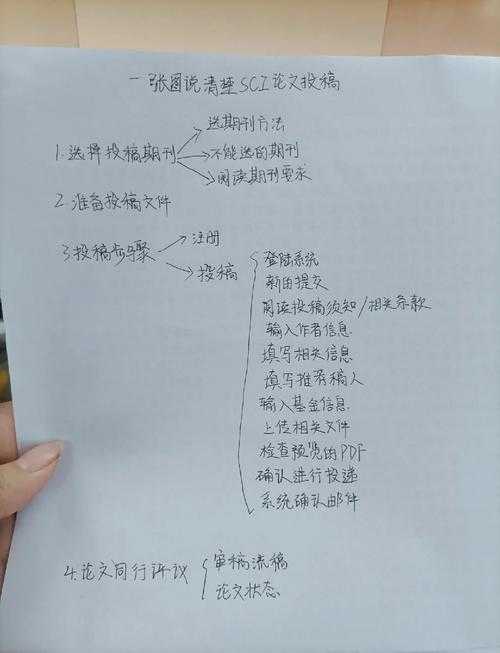 一张图说清楚SCI论文投稿
选期刊方法
1.选择投稿期刊
不能选的期刊
阅读期刊要求
2.准备投稿文件
3.投稿步骤
注册
投稿
登陆系统
新的提交
阅读投稿须知/相关条款
输入作者信息
填写相关信息
填写推荐稿人
输入基金信息
上传相关文件
检查预览的PDF
确认进行投递
系统确认邮件
4.论文同行评议
审稿流稿
论文状态